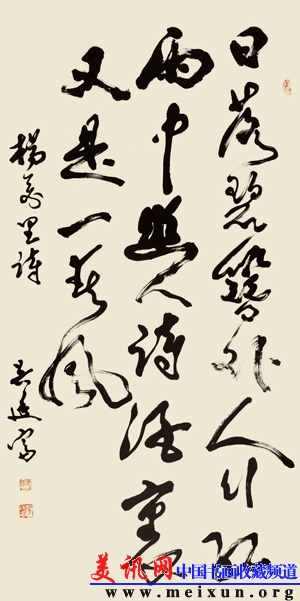 日落碧簪外人行紅
雨中幽人詩酒裏
又是一春風
楊萬里詩
美讯网 中国书画收藏频道
www.meixun.org